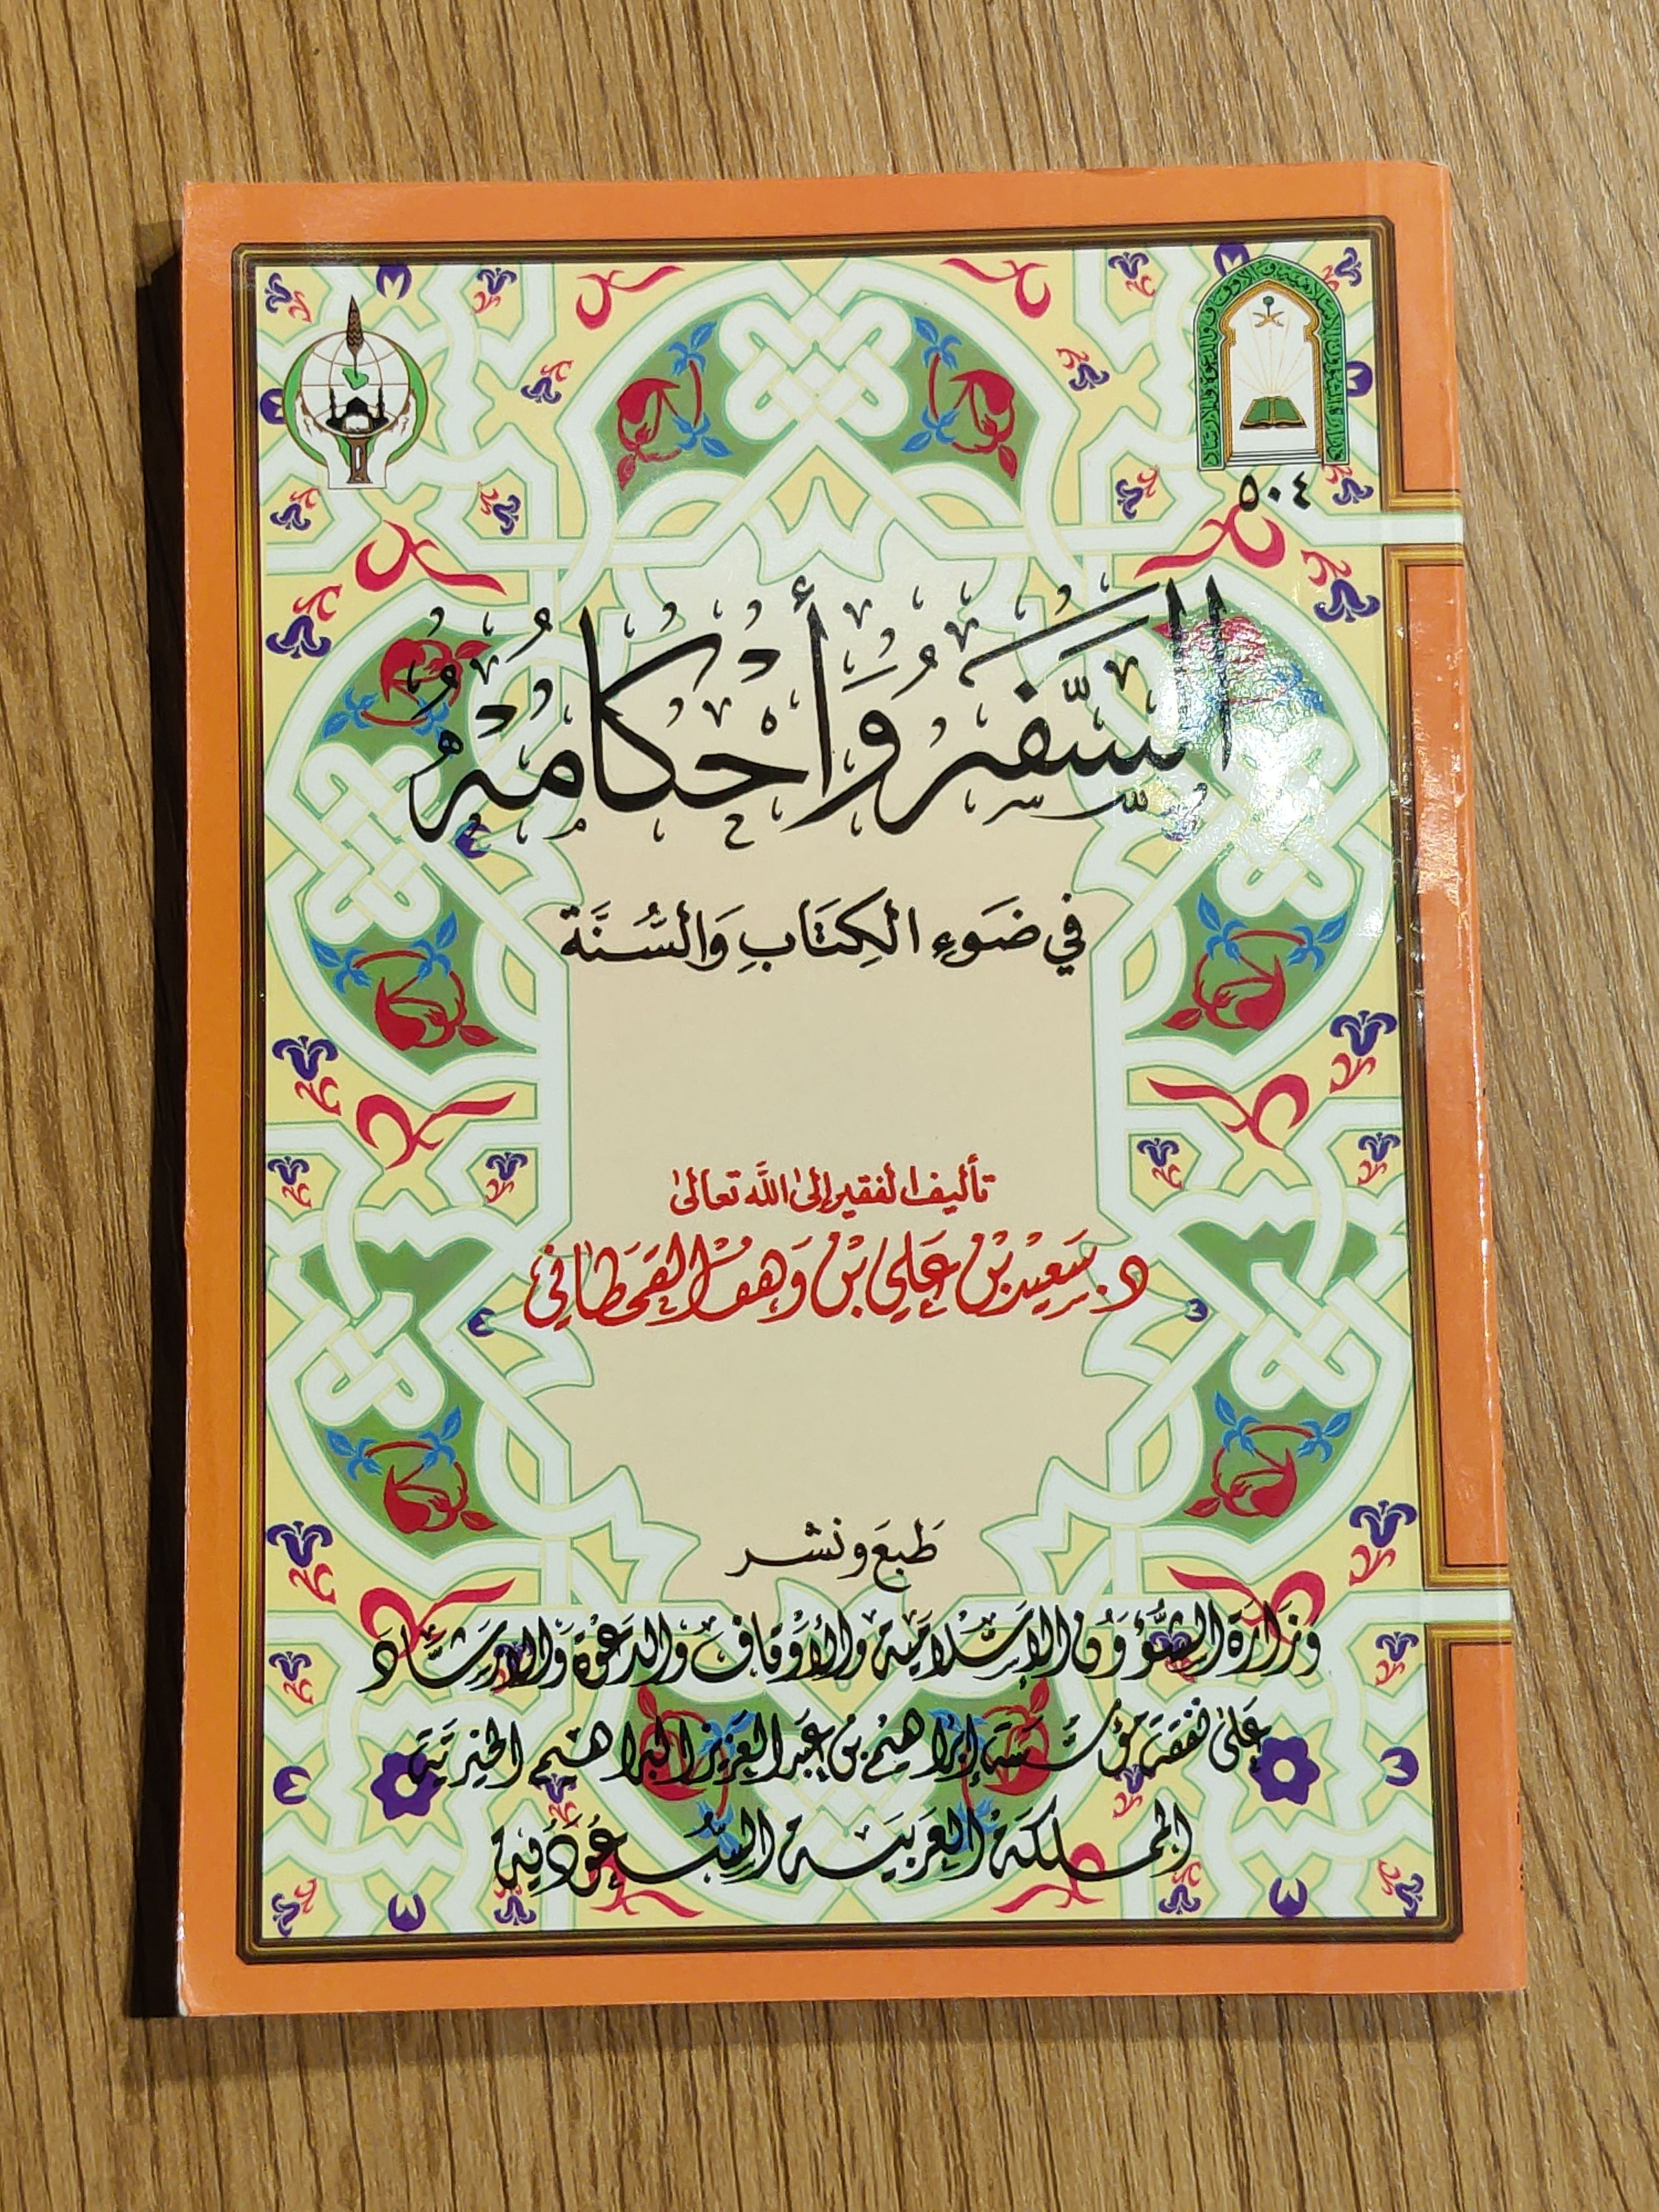 ٥٠٤
السَّفَرُ وَأَحْكَامُهُ
فِي ضَوْءِ الْكِتَابِ وَالسُّنَّة
تأليف الفقير إلى الله تعالى
د. سَعِيْد بْن عَلِي بْن وَهف القَحْطَانِي
طبع ونشر
وَزَارَة الشُّؤُوْن الإِسْلَامِيَّة وَالأَوْقَاف وَالدَّعْوَة وَالإِرْشَاد
عَلَى نَفَقَة مُؤَسَّسَة إِبْرَاهِيْم بن عَبد العَزِيْز البراهيم الخيرية
المملكة العَرَبيَّة السُّعُوْدِيَّة